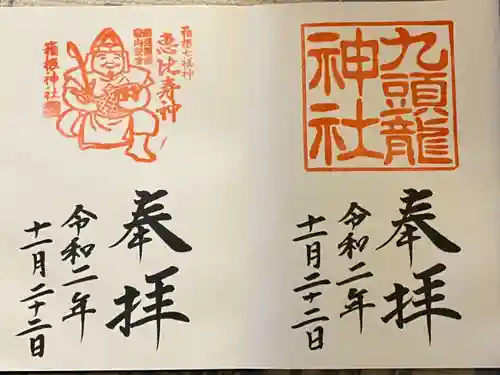 九頭龍
神社
奉拝
令和二年
十一月二十二日
箱根七福神
恵比寿神
箱根神社
奉拝
令和二年
十一月二十二日